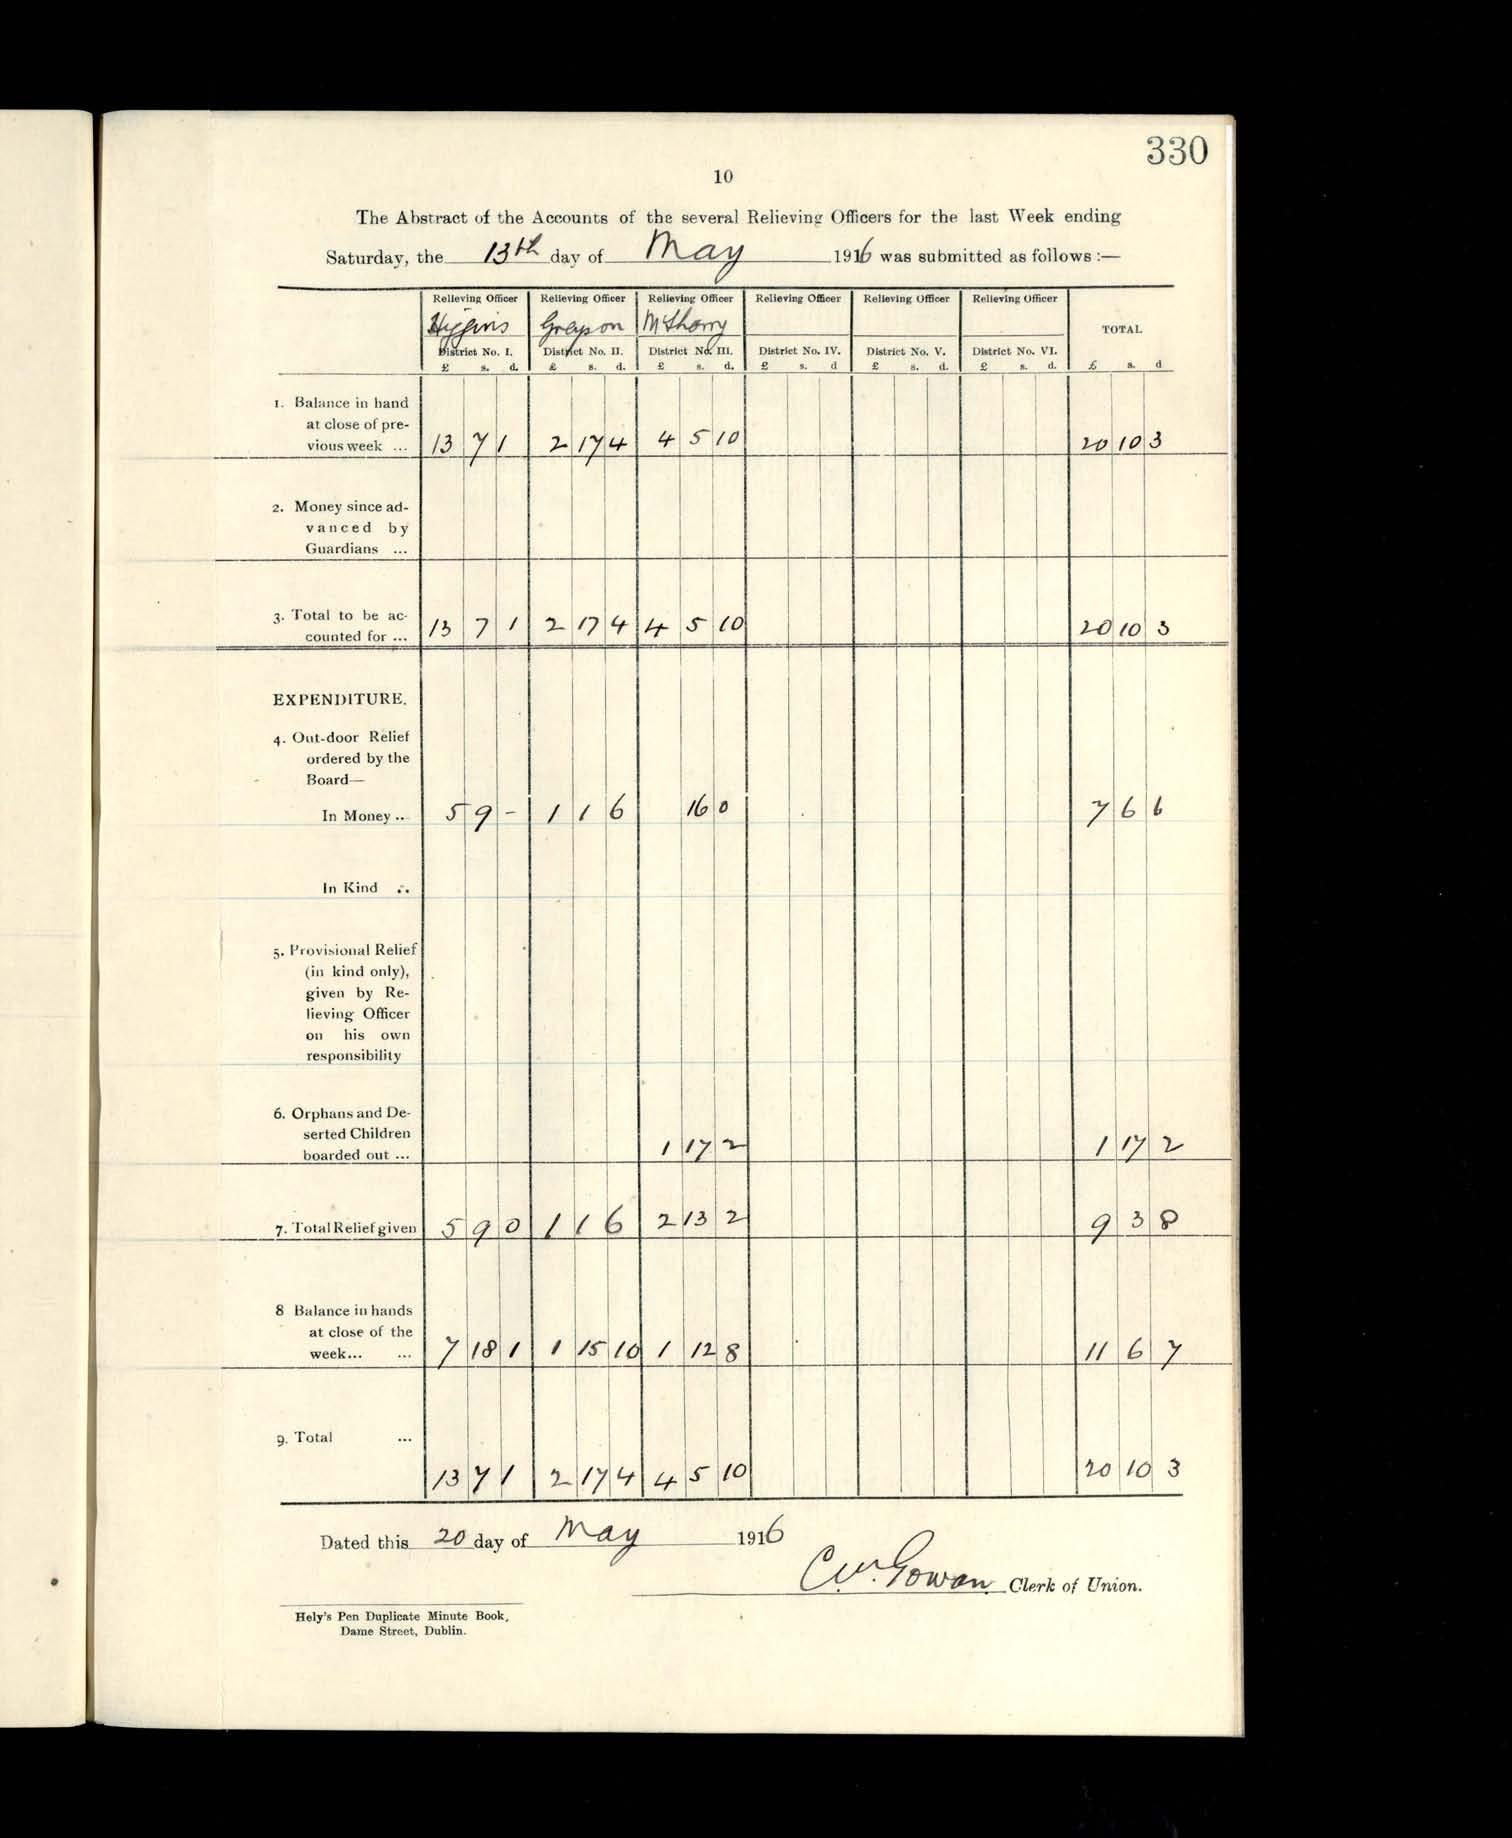 330
10
The Abstract of the Accounts of the several Relieving Officers for the last Week ending
Saturday, the 13th day of May 1916 was submitted as follows :—
Relieving Officer Relieving Officer Relieving Officer Relieving Officer Relieving Officer Relieving Officer
Higgins Grayson McSharry TOTAL
District No. I. District No. II. District No. III. District No. IV. District No. V. District No. VI.
£ s. d. £ s. d. £ s. d. £ s. d £ s. d. £ s. d. £ s. d
1. Balance in hand
at close of pre-
vious week ... 13 7 1 2 17 4 4 5 10 20 10 3
2. Money since ad-
vanced by
Guardians ...
3. Total to be ac-
counted for ... 13 7 1 2 17 4 4 5 10 20 10 3
EXPENDITURE.
4. Out-door Relief
ordered by the
Board—
In Money .. 5 9 - 1 1 6 16 0 7 6 6
In Kind ..
5. Provisional Relief
(in kind only),
given by Re-
lieving Officer
on his own
responsibility
6. Orphans and De-
serted Children
boarded out ... 1 17 2 1 17 2
7. Total Relief given 5 9 0 1 1 6 2 13 2 9 3 8
8 Balance in hands
at close of the
week... ... 7 18 1 1 15 10 1 12 8 11 6 7
9. Total ...
13 7 1 2 17 4 4 5 10 20 10 3
Dated this 20 day of May 1916
Gowan Clerk of Union.
Hely's Pen Duplicate Minute Book,
Dame Street, Dublin.